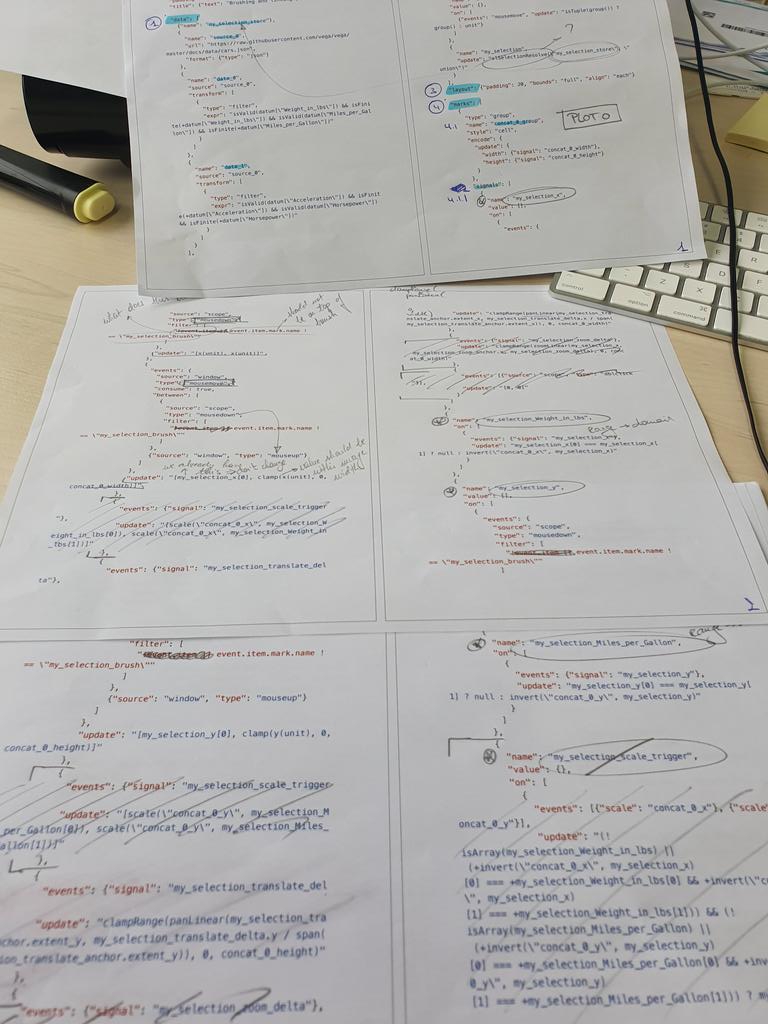 "title": {"text": "Brushing and
1
"data": [
{"name": "my_selection_store"},
{
"name": "source_0",
"url": "https://raw.githubusercontent.com/vega/vega/
master/docs/data/cars.json",
"format": {"type": "json"}
},
{
"name": "data_0",
"source": "source_0",
"transform": [
{
"type": "filter",
"expr": "isValid(datum[\"Weight_in_lbs\"]) && isFini
te(+datum[\"Weight_in_lbs\"]) && isValid(datum[\"Miles_per_Gal
lon\"]) && isFinite(+datum[\"Miles_per_Gallon\"])"
}
]
},
{
"name": "data_1",
"source": "source_0",
"transform": [
{
"type": "filter",
"expr": "isValid(datum[\"Acceleration\"]) && isFinit
e(+datum[\"Acceleration\"]) && isValid(datum[\"Horsepower\"])
&& isFinite(+datum[\"Horsepower\"])"
}
]
}
],
"value": {},
"on": [
{"events": "mousemove", "update": "isTuple(group()) ?
group() : unit"}
]
},
?
{
"name": "my_selection",
"update": "vlSelectionResolve(\"my_selection_store\", \"
union\")"
3 "layout": {"padding": 20, "bounds": "full", "align": "each"}
4 "marks": [
{
"type": "group",
4.1 "name": "concat_0_group",
PLOT 0
"style": "cell",
"encode": {
"update": {
"width": {"signal": "concat_0_width"},
"height": {"signal": "concat_0_height"}
}
},
4.1.1 "signals": [
{
"name": "my_selection_x",
"value": [],
"on": [
{
"events": {
1
control
option
command
what does this
"source": "scope",
"type": "mousedown",
"filter": [
event.item.mark.name !
== \"my_selection_brush\""
]
},
should not be on top of brush
"update": "[x(unit), x(unit)]"
},
{
"events": {
"source": "window",
"type": "mousemove",
"consume": true,
"between": [
{
"source": "scope",
"type": "mousedown",
"filter": [
event.item.mark.name !
== \"my_selection_brush\""
]
},
{"source": "window", "type": "mouseup"}
]
},
we already have this → don't change
value should be within image width
"update": "[my_selection_x[0], clamp(x(unit), 0,
concat_0_width)]"
},
{
"events": {"signal": "my_selection_scale_trigger
"},
"update": "[scale(\"concat_0_x\", my_selection_W
eight_in_lbs[0]), scale(\"concat_0_x\", my_selection_Weight_in
_lbs[1])]"
},
{
"events": {"signal": "my_selection_translate_del
ta"},
"update": "clampRange(panLinear(my_selection_tra
nslate_anchor.extent_x, my_selection_translate_delta.x / span(
my_selection_translate_anchor.extent_x)), 0, concat_0_width)"
},
{
"events": {"signal": "my_selection_zoom_delta"},
"update": "clampRange(zoomLinear(my_selection_x,
my_selection_zoom_anchor.x, my_selection_zoom_delta), 0, conc
at_0_width)"
},
{
"events": [{"source": "scope", "type": "dblclick
"}],
"update": "[0, 0]"
}
]
},
{
"name": "my_selection_Weight_in_lbs",
"on": [
{
range → domain
"events": {"signal": "my_selection_x"},
"update": "my_selection_x[0] === my_selection_x[
1] ? null : invert(\"concat_0_x\", my_selection_x)"
}
]
},
{
"name": "my_selection_y",
"value": [],
"on": [
{
"events": {
"source": "scope",
"type": "mousedown",
"filter": [
event.item.mark.name !
== \"my_selection_brush\""
]
2
"filter": [
event.item.mark.name !
== \"my_selection_brush\""
]
},
{"source": "window", "type": "mouseup"}
]
},
"update": "[my_selection_y[0], clamp(y(unit), 0,
concat_0_height)]"
},
{
"events": {"signal": "my_selection_scale_trigger
"update": "[scale(\"concat_0_y\", my_selection_M
_per_Gallon[0]), scale(\"concat_0_y\", my_selection_Miles_
allon[1])]"
},
{
"events": {"signal": "my_selection_translate_del
"update": "clampRange(panLinear(my_selection_tra
nchor.extent_y, my_selection_translate_delta.y / span(
ion_translate_anchor.extent_y)), 0, concat_0_height)"
},
{
"events": {"signal": "my_selection_zoom_delta"},
{
"name": "my_selection_Miles_per_Gallon",
range
"on": [
{
"events": {"signal": "my_selection_y"},
"update": "my_selection_y[0] === my_selection_y[
1] ? null : invert(\"concat_0_y\", my_selection_y)"
}
]
},
{
"name": "my_selection_scale_trigger",
"value": {},
"on": [
{
"events": [{"scale": "concat_0_x"}, {"scale
oncat_0_y"}],
"update": "(!
isArray(my_selection_Weight_in_lbs) ||
(+invert(\"concat_0_x\", my_selection_x)
[0] === +my_selection_Weight_in_lbs[0] && +invert(\"co
\", my_selection_x)
[1] === +my_selection_Weight_in_lbs[1])) && (!
isArray(my_selection_Miles_per_Gallon) ||
(+invert(\"concat_0_y\", my_selection_y)
[0] === +my_selection_Miles_per_Gallon[0] && +inv
0_y\", my_selection_y)
[1] === +my_selection_Miles_per_Gallon[1])) ? my